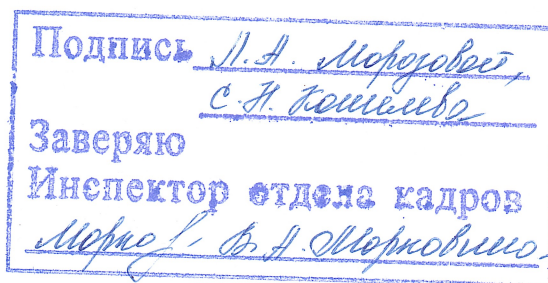 Подпись Л. А. Морозовой,
С. Н. Кошелева
Заверяю
Инспектор отдела кадров
В. А. Морковина